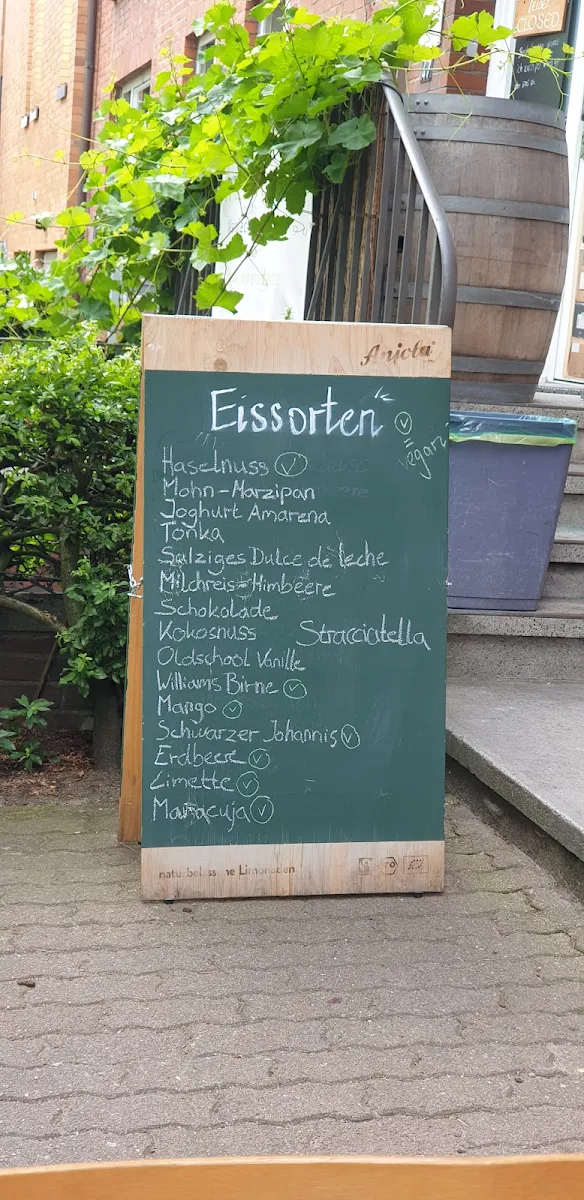 CLOSED
Anjola
Eissorten
✓ = vegan
Haselnuss ✓
Mohn-Marzipan
Joghurt Amarena
Tonka
Salziges Dulce de leche
Milchreis-Himbeere
Schokolade
Kokosnuss Stracciatella
Oldschool Vanille
Williams Birne ✓
Mango ✓
Schwarzer Johannis ✓
Erdbeere ✓
Limette ✓
Maracuja ✓
naturbelassene Limonaden